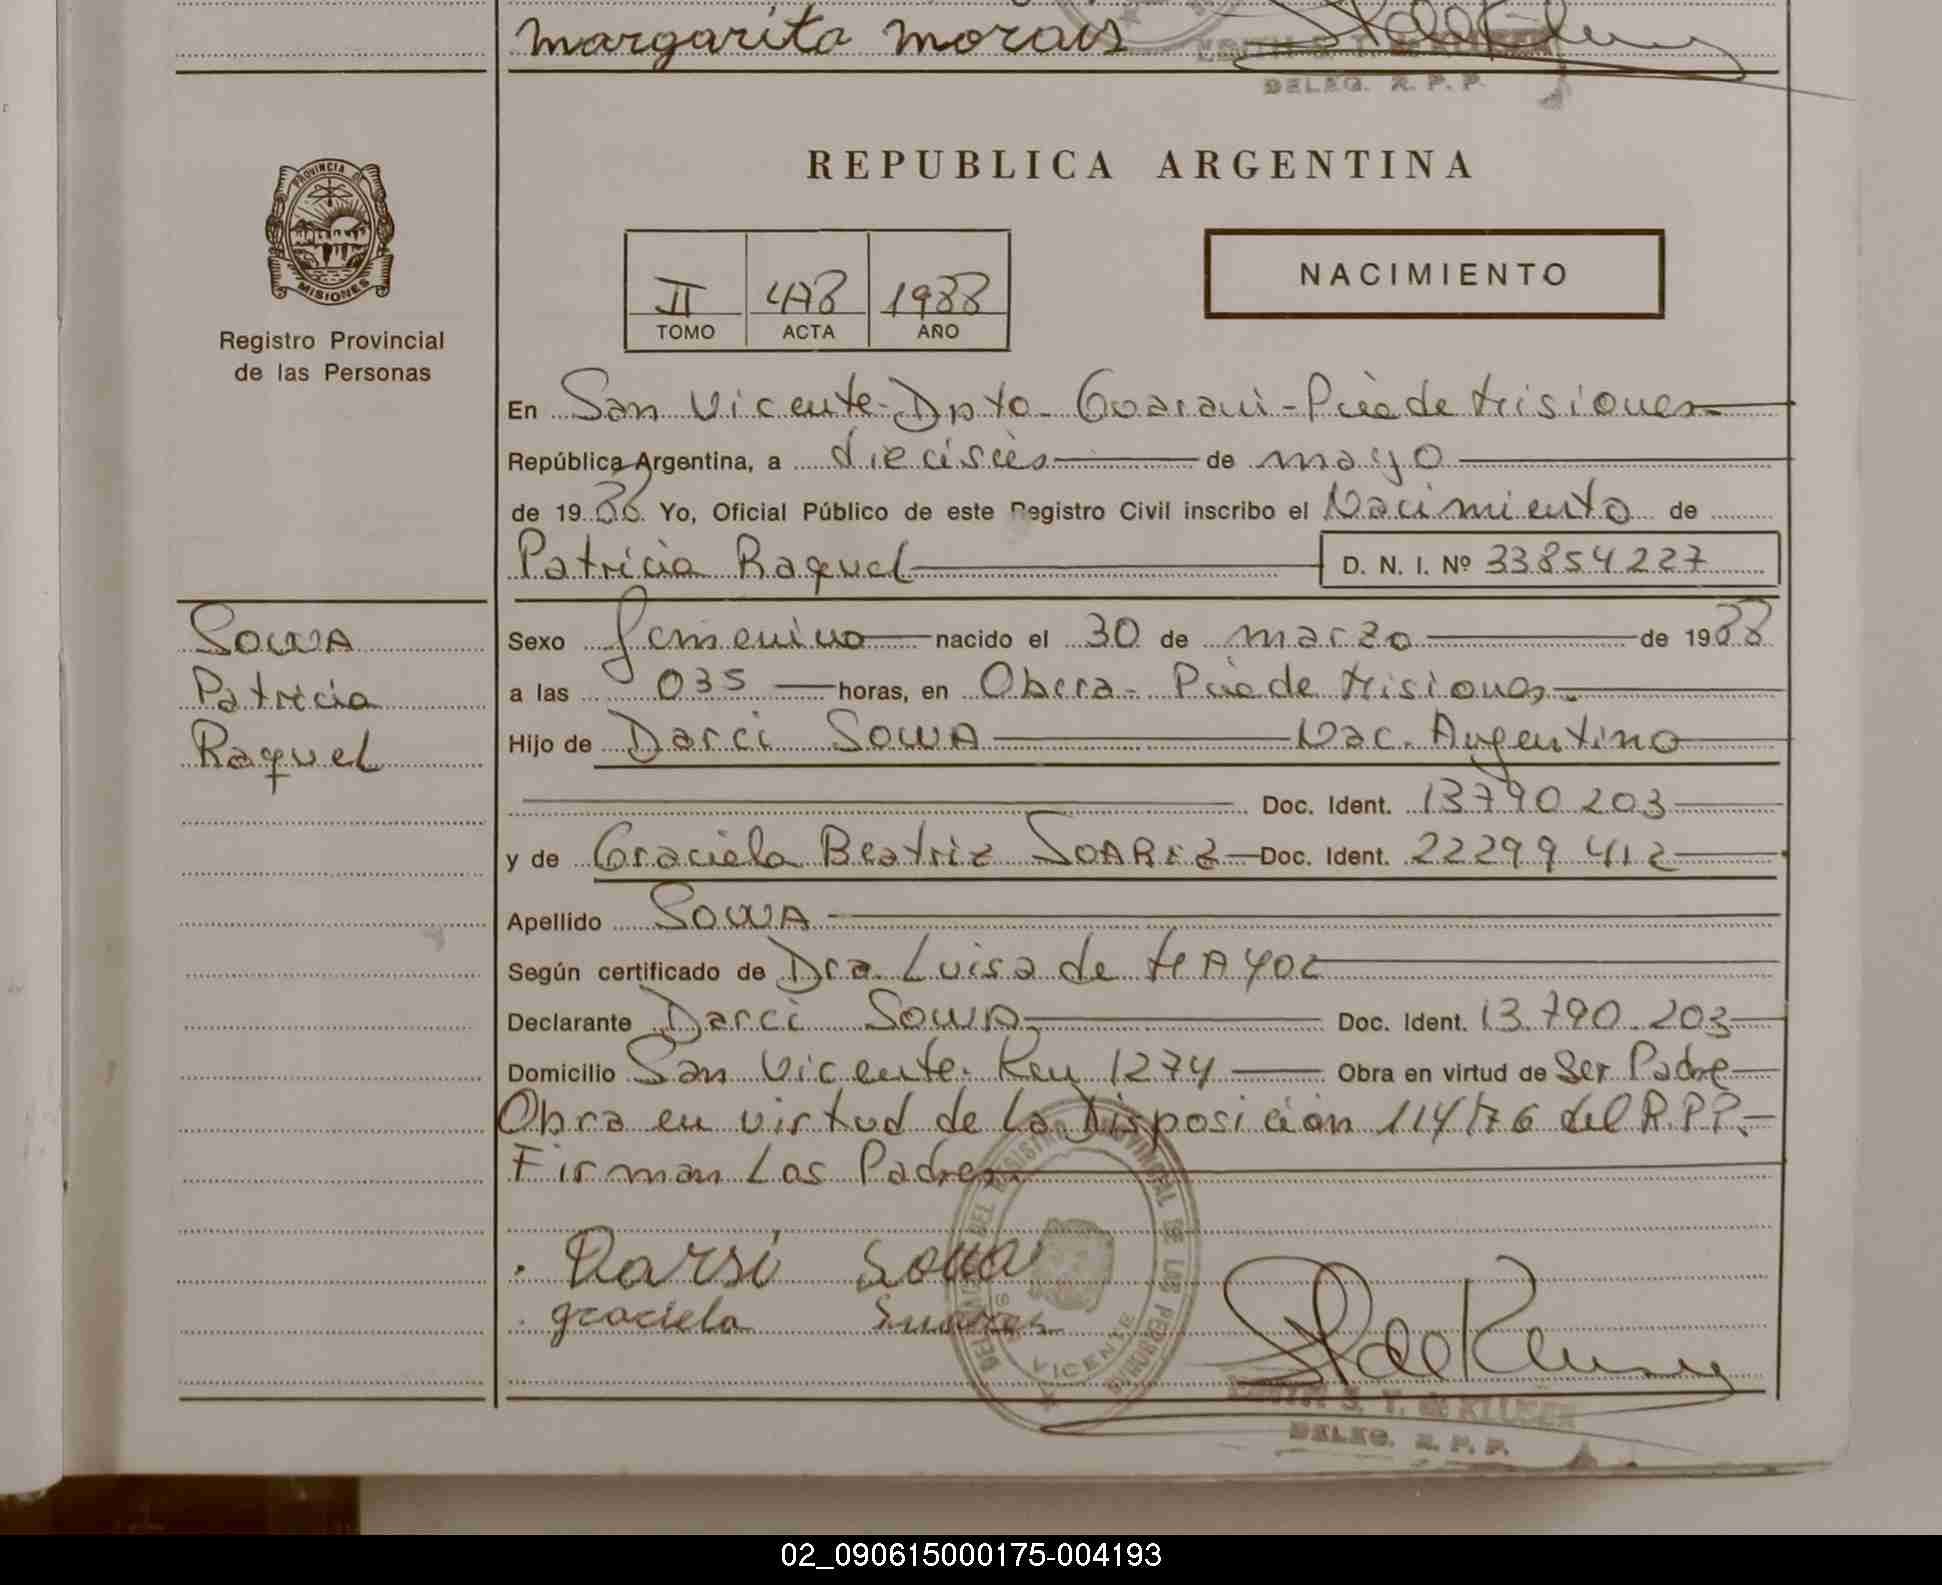 margarita morais
DELEG. R. P. P.
REPUBLICA ARGENTINA
PROVINCIA D
MISIONES
Registro Provincial
de las Personas
II 478 1988
TOMO ACTA AÑO
NACIMIENTO
En San Vicente-Dpto Guarani-Pcia de Misiones
República Argentina, a dieciseis de mayo
de 1988 Yo, Oficial Público de este Registro Civil inscribo el Nacimiento de
Patricia Raquel D. N. I. Nº 33854227
SOWA
Patricia
Raquel
Sexo femenino nacido el 30 de marzo de 1988
a las 035 horas, en Obera- Pcia de Misiones
Hijo de Darci SOWA Nac. Argentino
Doc. Ident. 13790 203
y de Graciela Beatriz SOAREZ Doc. Ident. 22299 412
Apellido SOWA
Según certificado de Dra. Luisa de MAYOL
Declarante Darci SOWA Doc. Ident. 13.790.203
Domicilio San Vicente. Km 1274 Obra en virtud de Ser Padre
Obra en virtud de la Disposición 114/76 del R.P.P.
Firman Los Padres
Darsi Sowa
graciela Suares
VICENTE
EDITH S. T. de KLUSEN
DELEG. R. P. P.
02_090615000175-004193